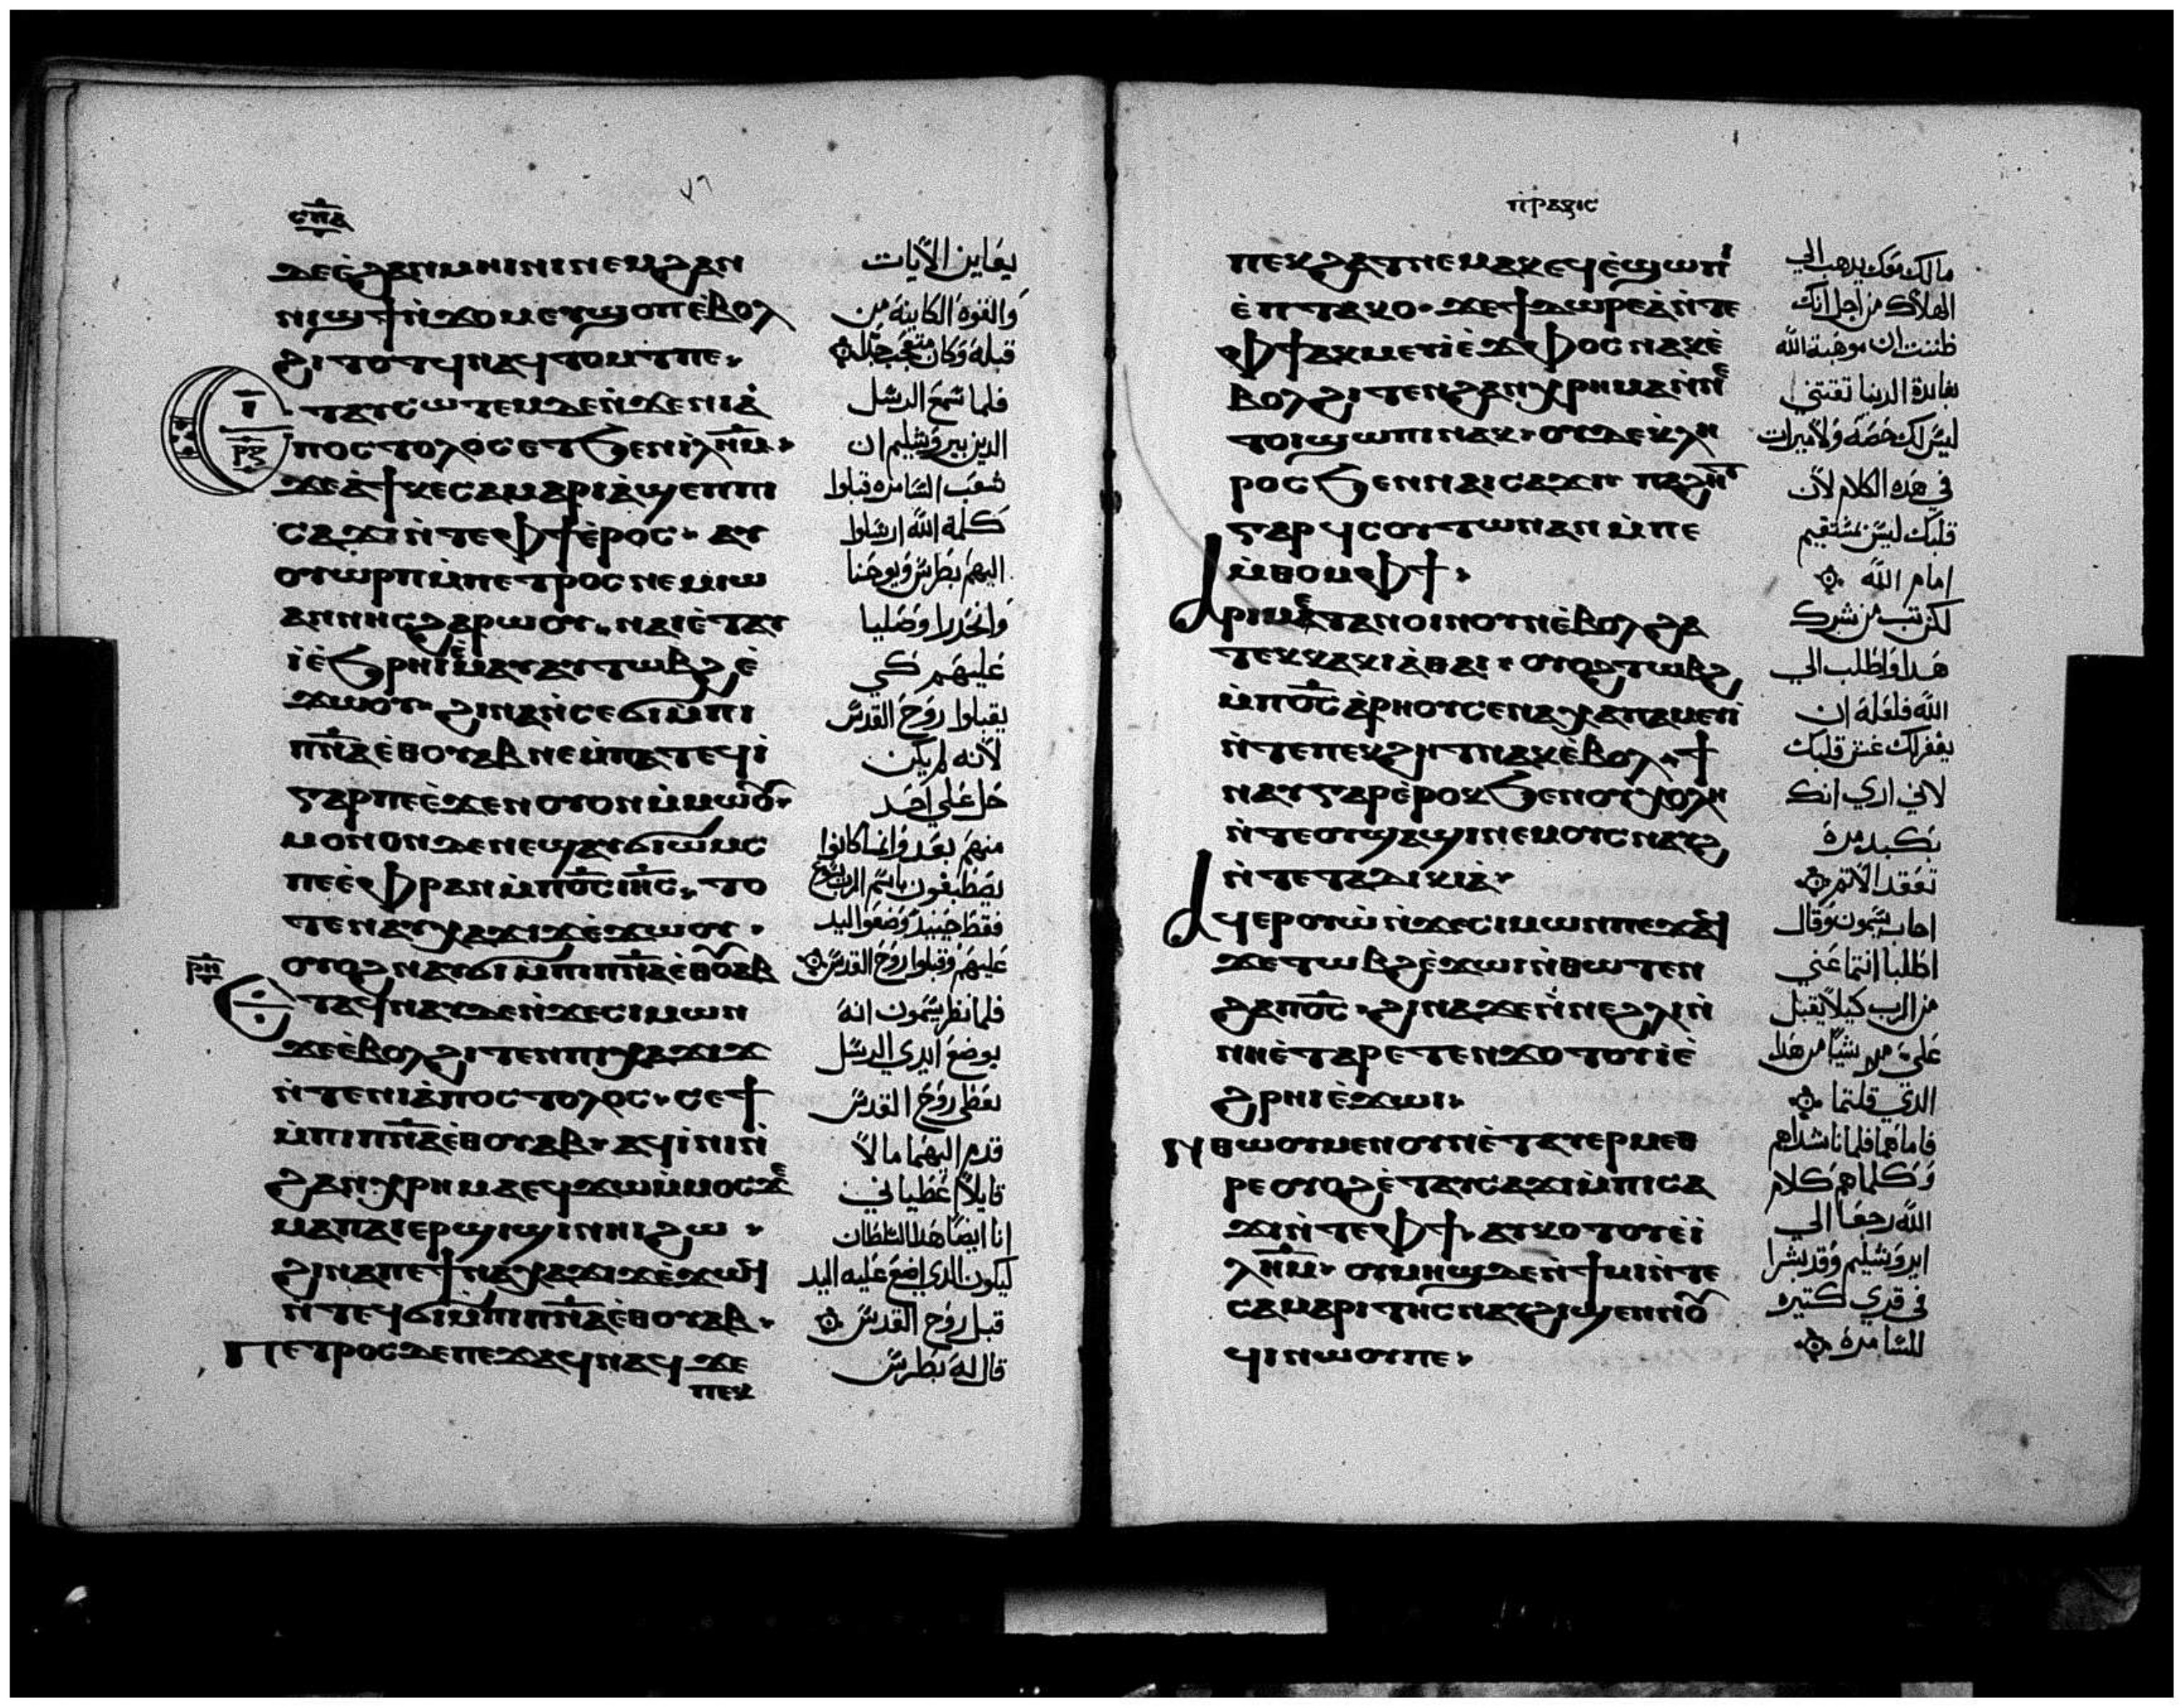 ⲥⲡⲁ
ⲇⲉⲉ̀ϩⲁⲛⲙⲏⲓⲛⲓⲛⲉⲙϩⲁⲛ
ⲛⲓϣϯⲛ̀ϫⲟⲙⲉⲩϣⲟⲡⲉ̀ⲃⲟⲗ
ϩⲓⲧⲟⲧϥⲛⲁϥⲧⲟⲙⲧⲡⲉ
ⲧⲁⲩⲥⲱⲧⲉⲙⲇⲉⲛ̀ϫⲉⲛⲓⲁ̀
ⲡⲟⲥⲧⲟⲗⲟⲥⲉⲧϧⲉⲛⲓⲗⲏⲙ
ϫⲉⲁ̀ϯⲕⲉⲥⲁⲙⲁⲣⲓⲁ̀ϣⲉⲡⲡⲓ
ⲥⲁϫⲓⲛ̀ⲧⲉⲫϯⲉ̀ⲣⲟⲥ ⲁⲩ
ⲟⲩⲱⲣⲡⲙ̀ⲡⲉⲧⲣⲟⲥⲛⲉⲙⲓⲱ
ⲁⲛⲛⲏⲥϩⲁⲣⲱⲟⲩ ⲛⲁⲓⲉ̀ⲧⲁⲩ
ⲓ̀ⲉ̀ϧⲣⲏⲓⲉ̀ⲙⲁⲩⲁⲩⲧⲱⲃϩⲉ̀
ϫⲱⲟⲩ ϩⲓⲛⲁⲛ̀ⲥⲉϭⲓⲙ̀ⲡⲓ
ⲡⲛⲁⲉ̀ⲑⲟⲩⲁⲃⲛⲉⲙ̀ⲡⲁⲧⲉϥⲓ̀
ⲅⲁⲣⲡⲉⲉ̀ϫⲉⲛⲟⲩⲟⲛⲙ̀ⲙⲱⲟⲩ
ⲙⲟⲛⲟⲛⲇⲉⲛⲉϣⲁⲩϭⲓⲱⲙⲥ
ⲡⲉⲉ̀ⲫⲣⲁⲛⲙ̀ⲡⲟⲥⲓⲏⲥ ⲧⲟ
ⲧⲉⲛⲁⲩⲭⲁϫⲓϫⲉ̀ϫⲱⲟⲩ
ⲟⲩⲟϩⲛⲁⲩϭⲓⲙ̀ⲡⲓⲡⲛⲁⲉ̀ⲑⲟⲩⲁⲃ
ⲣⲏ
ⲧⲁϥⲛⲁⲩⲇⲉⲛ̀ϫⲉⲥⲓⲙⲱⲛ
ϫⲉⲉ̀ⲃⲟⲗϩⲓⲧⲉⲛⲡⲓⲭⲁϫⲓϫ
ⲛ̀ⲧⲉⲛⲓⲁ̀ⲡⲟⲥⲧⲟⲗⲟⲥ ⲥⲉϯ
ⲙ̀ⲡⲓⲡⲛⲁⲉ̀ⲑⲟⲩⲁⲃ ⲁϥⲓ̀ⲛⲓⲛ̀
ϩⲁⲛⲭⲣⲏⲙⲁⲉϥϫⲱⲙ̀ⲙⲟⲥϫⲉ
ⲙⲁⲡⲁⲓⲉⲣϣⲓϣⲓⲛⲏⲓϩⲱ
ϩⲓⲛⲁⲡⲉϯⲛⲁⲭⲁϫⲓϫⲉ̀ϫⲱϥ
ⲛ̀ⲧⲉϥϭⲓⲙ̀ⲡⲓⲡⲛⲁⲉ̀ⲑⲟⲩⲁⲃ
ⲡⲉⲧⲣⲟⲥⲇⲉⲡⲉϫⲁϥⲛⲁϥϫⲉ
ⲡⲉⲕ
يعاين الآيات
والقوة الكاينة من
قبله وكان متعجب جدا
فلما سمع الرسل
الدين بيروشليم ان
شعب السامره قبلوا
كلمة الله ارسلوا
اليهم بطرس ويوحنا
وانحدرا وصليا
عليهم كي
يقبلوا روح القدس
لأنه لم يكن
حل علي احد
منهم بعد وانما كانوا
يصطبغون باسم الرب يسوع
فقط حينيد وضعوا اليد
عليهم وقبلوا روح القدس
فلما نظر سيمون انه
بوضع ايدي الرسل
تعطى روح القدس
قدم اليهما مالاً
قايلاً اعطياني
انا ايضاً هدا السلطان
ليكون الدي اضع عليه اليد
قبل روح القدس
قال له بطرس
ⲡⲣⲁⲝⲓⲥ
ⲡⲉⲕϩⲁⲧⲛⲉⲙⲁⲕⲉϥⲉ̀ϣⲱⲡⲓ
ⲉ̀ⲡⲧⲁⲕⲟ ϫⲉϯⲇⲱⲣⲉⲁ̀ⲛ̀ⲧⲉ
ⲫϯⲁⲕⲙⲉⲩⲓ̀ⲉ̀ϫⲫⲟⲥⲛⲁⲕⲉ̀
ⲃⲟⲗϩⲓⲧⲉⲛϩⲁⲛⲭⲣⲏⲙⲁⲛ̀ⲛⲉ
ⲧⲟⲓϣⲱⲡⲓⲛⲁⲕ ⲟⲩⲇⲉⲕⲗⲏ
ⲣⲟⲥϧⲉⲛⲛⲁⲓⲥⲁϫⲓ ⲡⲁϩⲏⲧ
ⲅⲁⲣϥⲥⲟⲩⲧⲱⲛⲁⲛⲙ̀ⲡⲉ
ⲙ̀ⲑⲟⲙⲫϯ
ⲁⲣⲓⲙⲉⲧⲁⲛⲟⲓⲛⲟⲩⲛⲉ̀ⲃⲟⲗϩⲁ
ⲧⲉⲕⲕⲁⲕⲓⲁ̀ⲑⲁⲓ ⲟⲩⲟϩⲧⲱⲃϩ
ⲙ̀ⲡⲟⲥⲁ̀ⲣⲏⲟⲩⲥⲉⲛⲁⲭⲁⲡⲁⲙⲉⲩⲓ̀
ⲛ̀ⲧⲉⲡⲉⲕϩⲏⲧⲛⲁⲕⲉ̀ⲃⲟⲗ ϯ
ⲛⲁⲩⲅⲁⲣⲉ̀ⲣⲟⲕϧⲉⲛⲟⲩⲭⲟⲗⲏ
ⲛ̀ⲧⲉⲟⲩϣⲁϣⲓⲛⲉⲙⲟⲩⲥⲛⲁⲩϩ
ⲛ̀ⲧⲉⲧⲁⲇⲓⲕⲓⲁ̀
ⲁϥⲉⲣⲟⲩⲱ̀ⲛ̀ϫⲉⲥⲓⲙⲱⲛⲡⲉϫⲁϥ
ϫⲉⲧⲱⲃϩⲉ̀ϫⲱⲓⲛ̀ⲑⲱⲧⲉⲛ
ϩⲁⲡⲟⲥ ϩⲓⲛⲁϫⲉⲛ̀ⲛⲉϩⲗⲓⲛ̀
ⲛⲏⲉ̀ⲧⲁⲣⲉⲧⲉⲛϫⲟⲧⲟⲩⲓ̀ⲉ̀
ϩⲣⲏⲓⲉ̀ϫⲱⲓ
ⲛⲑⲱⲟⲩⲙⲉⲛⲟⲩⲛⲉ̀ⲧⲁⲩⲉⲣⲙⲉⲑ
ⲣⲉⲟⲩⲟϩⲉ̀ⲧⲁⲩⲥⲁϫⲓⲙ̀ⲡⲓⲥⲁ
ϫⲓⲛ̀ⲧⲉⲫϯ ⲁⲩⲕⲟⲧⲟⲩⲉ̀ⲓ̀
ⲗⲏⲙ ⲟⲩⲙⲏϣⲇⲉⲛ̀ϯⲙⲓⲛ̀ⲧⲉ
ⲥⲁⲙⲁⲣⲓⲧⲏⲥⲛⲁⲩϩⲓϣⲉⲛⲛⲟⲩ
ϥⲓⲛⲱⲟⲩⲡⲉ
مالك معك يدهب الي
الهلاك من اجل انك
ظننت ان موهبة الله
بفايدة الدنيا تقتني
ليس لك حصة ولا ميرات
في هده الكلام لأن
قلبك ليس بمستقيم
امام الله
لكن تب من شرك
هدا واطلب الي
الله فلعله ان
يغفر لك غش قلبك
لاني اري انك
بكبد مرة
تعقد الاتم
اجاب سيمون وقال
اطلبا انتما عني
من الرب كيلا يقبل
علي شيا من هدا
الدي قلتما
فاما هما فلما ناشداهم
وكلماهم كلام
الله رجعا الي
ايروشليم وقد بشرا
في قري كتيره
للسامرة